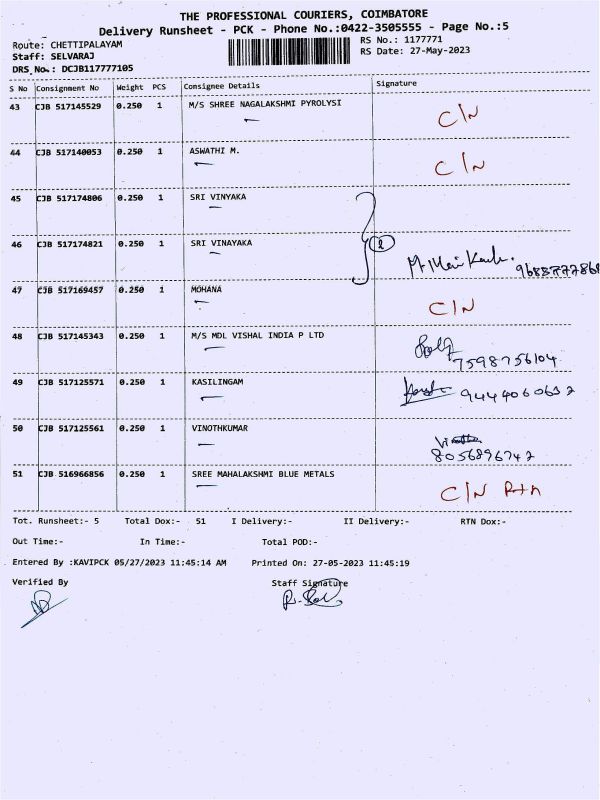 THE PROFESSIONAL COURIERS, COIMBATORE
Delivery Runsheet - PCK - Phone No.:0422-3505555 - Page No.:5
Route: CHETTIPALAYAM RS No.: 1177771
Staff: SELVARAJ RS Date: 27-May-2023
DRS No.: DCJB117777105
S No Consignment No Weight PCS Consignee Details Signature
43 CJB 517145529 0.250 1 M/S SHREE NAGALAKSHMI PYROLYSI C/N
44 CJB 517140053 0.250 1 ASWATHI M. C/N
45 CJB 517174806 0.250 1 SRI VINYAKA
46 CJB 517174821 0.250 1 SRI VINAYAKA 2
47 CJB 517169457 0.250 1 MOHANA C/N
48 CJB 517145343 0.250 1 M/S MDL VISHAL INDIA P LTD
7598756104
49 CJB 517125571 0.250 1 KASILINGAM
50 CJB 517125561 0.250 1 VINOTHKUMAR
8056896742
51 CJB 516966856 0.250 1 SREE MAHALAKSHMI BLUE METALS C/N Rtn
Tot. Runsheet:- 5 Total Dox:- 51 I Delivery:- II Delivery:- RTN Dox:-
Out Time:- In Time:- Total POD:-
Entered By :KAVIPCK 05/27/2023 11:45:14 AM Printed On: 27-05-2023 11:45:19
Verified By Staff Signature